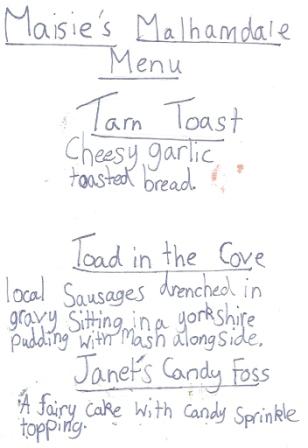 Maisie's Malhamdale
Menu
Tarn Toast
Cheesy garlic
toasted bread.
Toad in the Cove
local Sausages drenched in
gravy Sitting in a yorkshire
pudding with Mash alongside.
Janet's Candy Foss
A fairy cake with candy Sprinkle
topping.